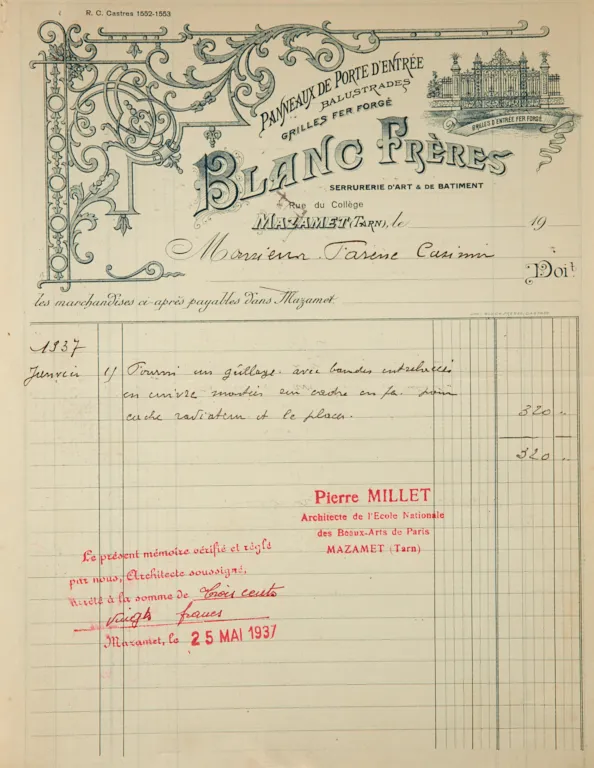 R. C. Castres 1552-1553
PANNEAUX DE PORTE D'ENTRÉE
BALUSTRADES
GRILLES FER FORGÉ
GRILLES D'ENTRÉE FER FORGÉ
BLANC FRÈRES
SERRURERIE D'ART & DE BATIMENT
Rue du Collège
MAZAMET (TARN), le 19
Monsieur Farenc Casimir
Doit
les marchandises ci-après payables dans Mazamet
1937
Janvier 15 Fourni un grillage avec bandes entrelacés
en cuivre montés sur cadre en fer pour
cache radiateur et le placer. 320 "
320 "
Pierre MILLET
Architecte de l'Ecole Nationale
des Beaux-Arts de Paris
MAZAMET (Tarn)
Le présent mémoire vérifié et réglé
par nous, Architecte soussigné,
arrêté à la somme de Trois cents
vingts francs
Mazamet, le 25 MAI 1937